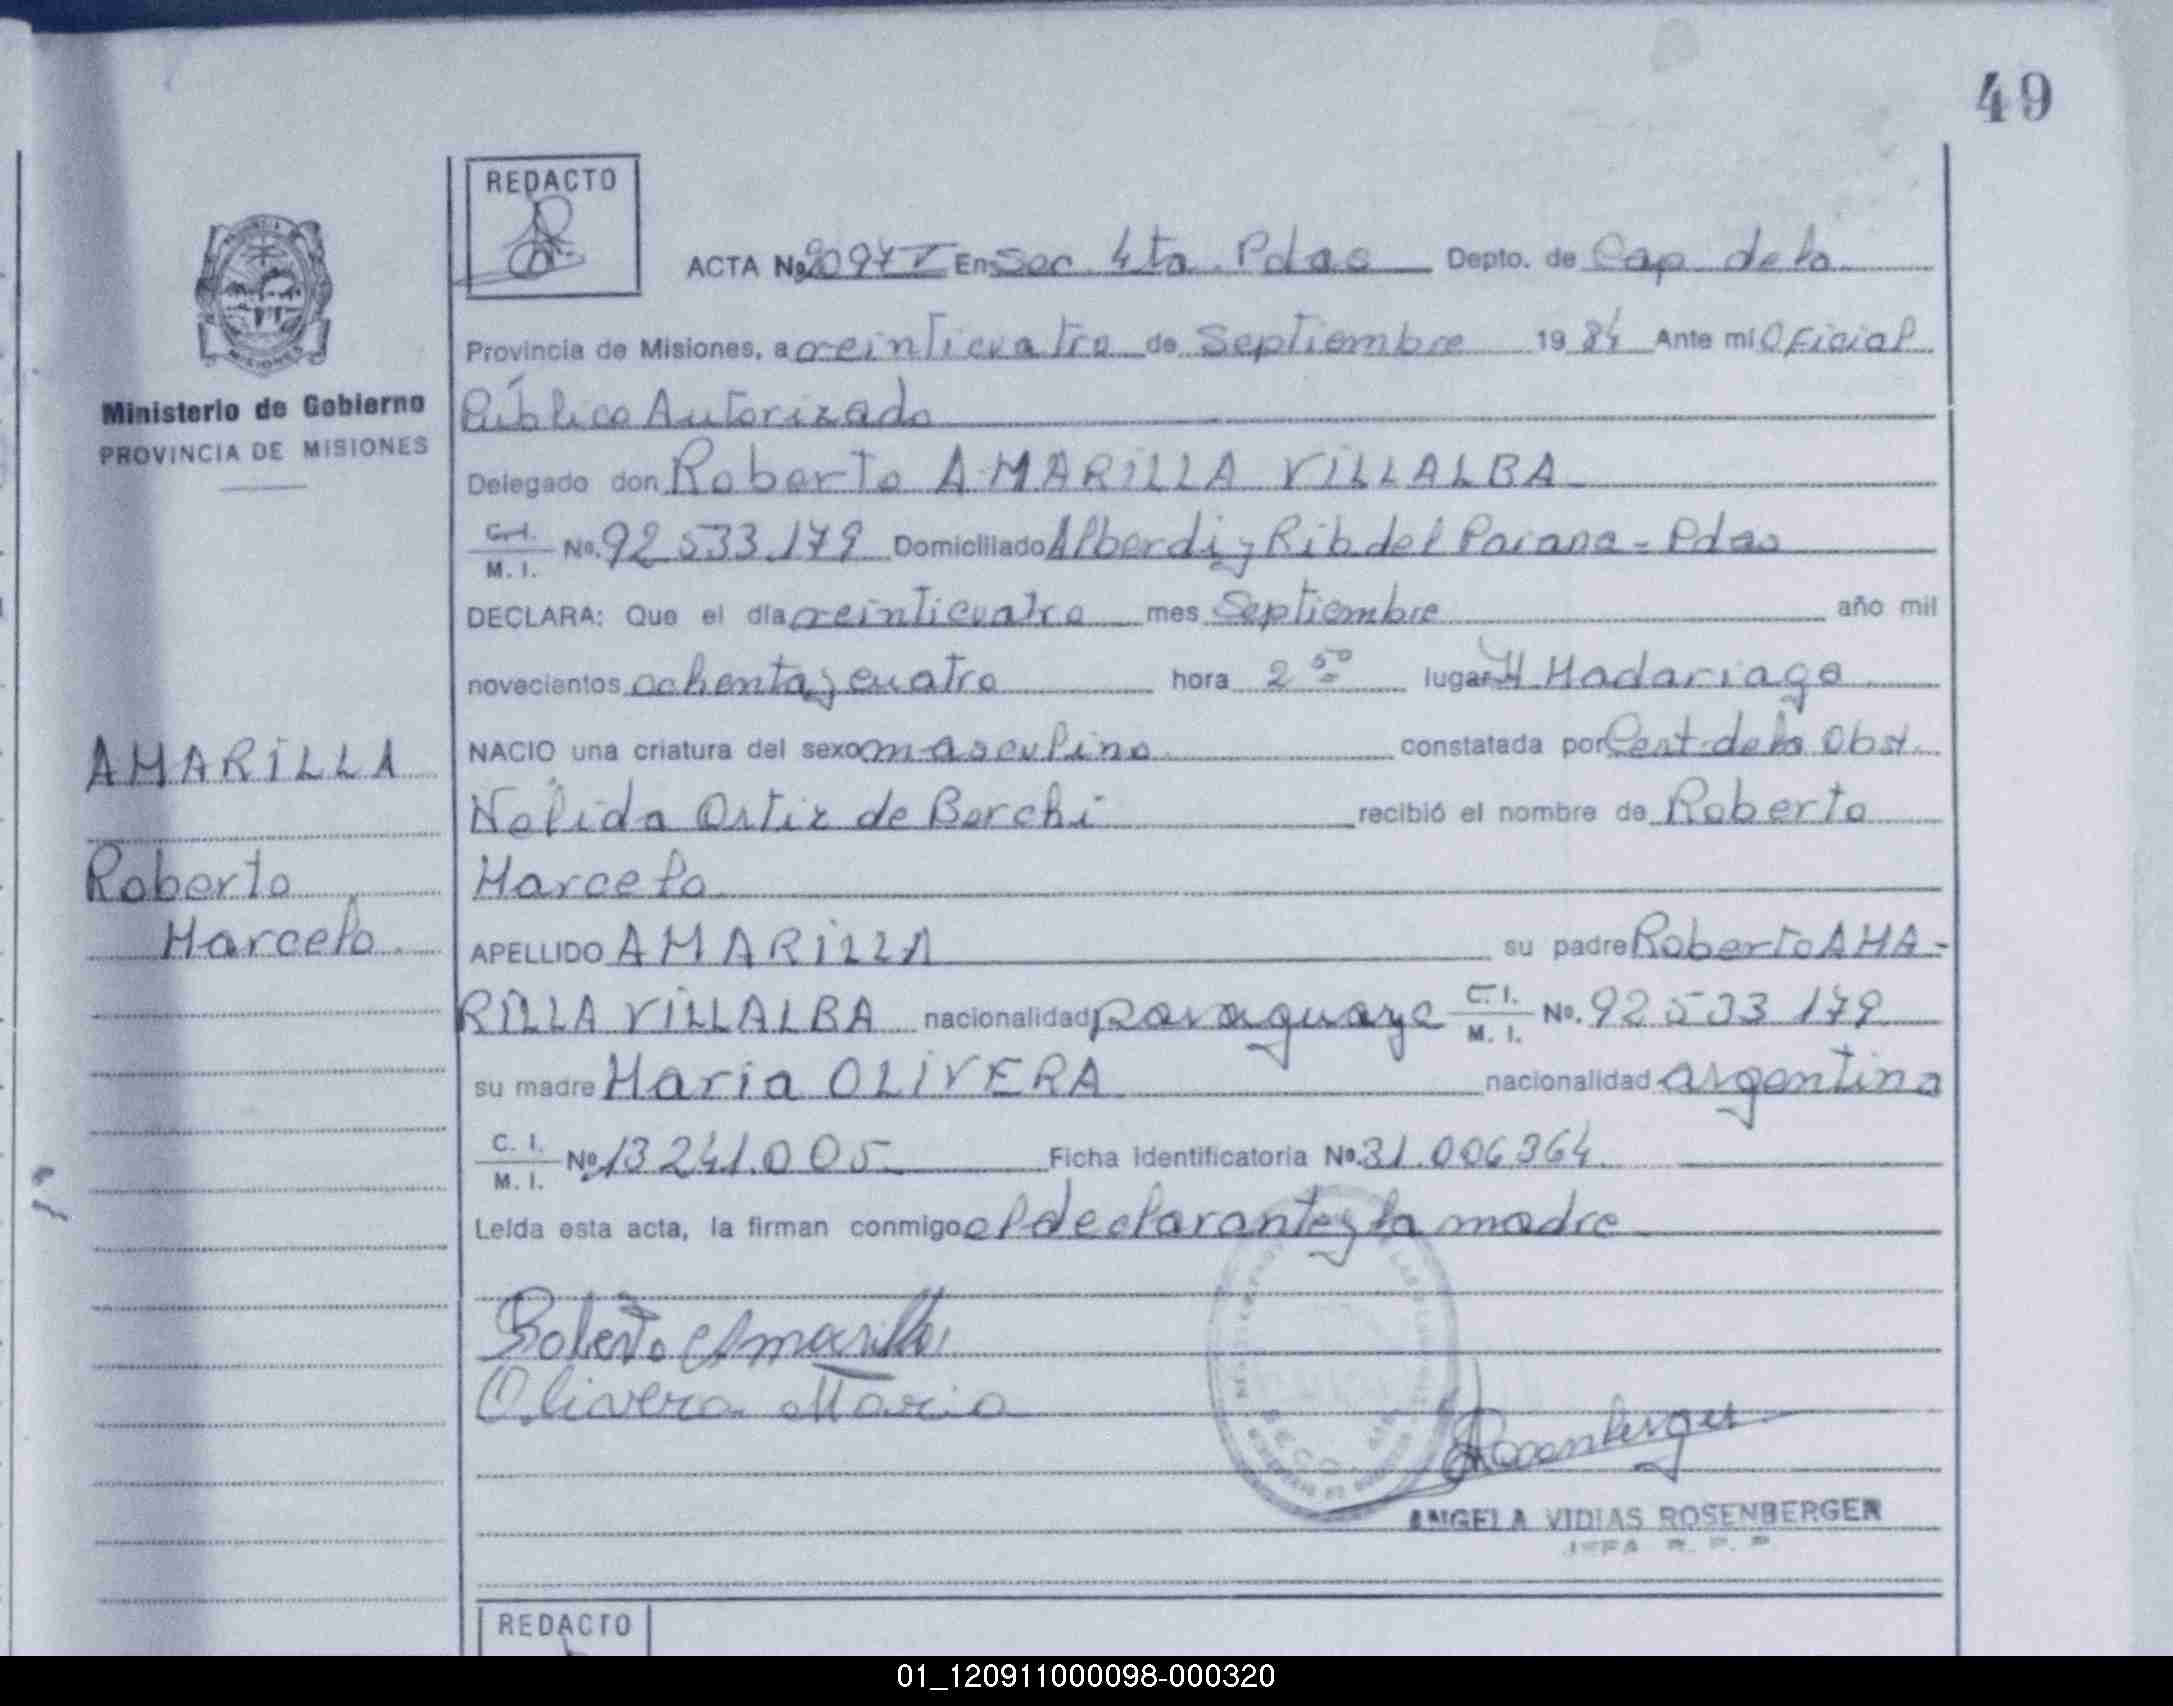 49
REDACTO
ACTA No. 2097 T En Sec. 4ta. Pdas Depto. de Cap. de la
Provincia de Misiones, a veinticuatro de Septiembre 19 84 Ante mi Oficial
Público Autorizado
Ministerio de Gobierno
PROVINCIA DE MISIONES
Delegado don Roberto AMARILLA VILLALBA
C. I. No. 92 533.179 Domicililado Alberdi y Rib del Parana - Pdas
M. I.
DECLARA: Que el día veinticuatro mes Septiembre año mil
novecientos ochenta y cuatro hora 2 50 lugar H Madariaga
NACIO una criatura del sexo masculino constatada por Cert. de la Obst.
Nélida Ortiz de Berchi recibió el nombre de Roberto
Marcelo
AMARILLA
Roberto
Marcelo
APELLIDO AMARILLA su padre Roberto AMA-
RILLA VILLALBA nacionalidad paraguaya C. I. No. 92 533 179
M. I.
su madre Maria OLIVERA nacionalidad argentina
C. I. No. 13 241.005 Ficha Identificatoria No. 31.006364
M. I.
Leída esta acta, la firman conmigo el declarante y la madre
Roberto Amarilla
Olivera Maria
Rosenberger
ANGELA VIDIAS ROSENBERGER
JEFA R. P. P
REDACTO
01_120911000098-000320